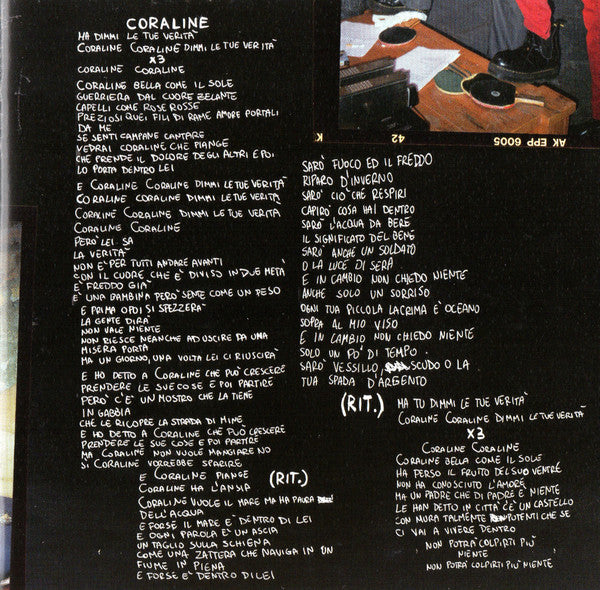 CORALINE
MA DIMMI LE TUE VERITÀ
CORALINE CORALINE DIMMI LE TUE VERITÀ
X3
CORALINE CORALINE
CORALINE BELLA COME IL SOLE
GUERRIERA DAL CUORE ZELANTE
CAPELLI COME ROSE ROSSE
PREZIOSI QUEI FILI DI RAME AMORE PORTALI
DA ME
SE SENTI CAMPANE CANTARE
VEDRAI CORALINE CHE PIANGE
CHE PRENDE IL DOLORE DEGLI ALTRI E POI
LO PORTA DENTRO LEI
E CORALINE CORALINE DIMMI LE TUE VERITÀ
CORALINE CORALINE DIMMI LE TUE VERITÀ
CORALINE CORALINE DIMMI LE TUE VERITÀ
CORALINE CORALINE
PERÒ LEI SA
LA VERITÀ
NON È PER TUTTI ANDARE AVANTI
CON IL CUORE CHE È DIVISO IN DUE METÀ
È FREDDO GIÀ
È UNA BAMBINA PERÒ SENTE COME UN PESO
E PRIMA O POI SI SPEZZERÀ
LA GENTE DIRÀ
NON VALE NIENTE
NON RIESCE NEANCHE AD USCIRE DA UNA
MISERA PORTA
MA UN GIORNO, UNA VOLTA LEI CI RIUSCIRÀ
E HO DETTO A CORALINE CHE PUÒ CRESCERE
PRENDERE LE SUE COSE E POI PARTIRE
PERÒ C'E' UN MOSTRO CHE LA TIENE
IN GABBIA
CHE LE RICOPRE LA STRADA DI MINE
E HO DETTO A CORALINE CHE PUÒ CRESCERE
PRENDERE LE SUE COSE E POI PARTIRE
MA CORALINE NON VUOLE MANGIARE NO
SÌ CORALINE VORREBBE SPARIRE
E CORALINE PIANGE (RIT.)
CORALINE HA L'ANSIA
CORALINE VUOLE IL MARE MA HA PAURA
DELL'ACQUA
E FORSE IL MARE È DENTRO DI LEI
E OGNI PAROLA È UN'ASCIA
UN TAGLIO SULLA SCHIENA
COME UNA ZATTERA CHE NAVIGA IN UN
FIUME IN PIENA
E FORSE È DENTRO DI LEI
K
42
AK EPP 6005
SARÒ FUOCO ED IL FREDDO
RIPARO D'INVERNO
SARÒ CIÒ CHE RESPIRI
CAPIRÒ COSA HAI DENTRO
SARÒ L'ACQUA DA BERE
IL SIGNIFICATO DEL BENE
SARÒ ANCHE UN SOLDATO
O LA LUCE DI SERA
E IN CAMBIO NON CHIEDO NIENTE
ANCHE SOLO UN SORRISO
OGNI TUA PICCOLA LACRIMA È OCEANO
SOPRA AL MIO VISO
E IN CAMBIO NON CHIEDO NIENTE
SOLO UN PO' DI TEMPO
SARÒ VESSILLO, SCUDO O LA
TUA SPADA D'ARGENTO
(RIT.) MA TU DIMMI LE TUE VERITÀ
CORALINE CORALINE DIMMI LE TUE VERITÀ
X3
CORALINE CORALINE
CORALINE BELLA COME IL SOLE
HA PERSO IL FRUTTO DEL SUO VENTRE
NON HA CONOSCIUTO L'AMORE
MA UN PADRE CHE DI PADRE È NIENTE
LE HAN DETTO IN CITTÀ C'È UN CASTELLO
CON MURA TALMENTE POTENTI CHE SE
CI VAI A VIVERE DENTRO
NON POTRÀ COLPIRTI PIÙ
NIENTE
NON POTRÀ COLPIRTI PIÙ NIENTE